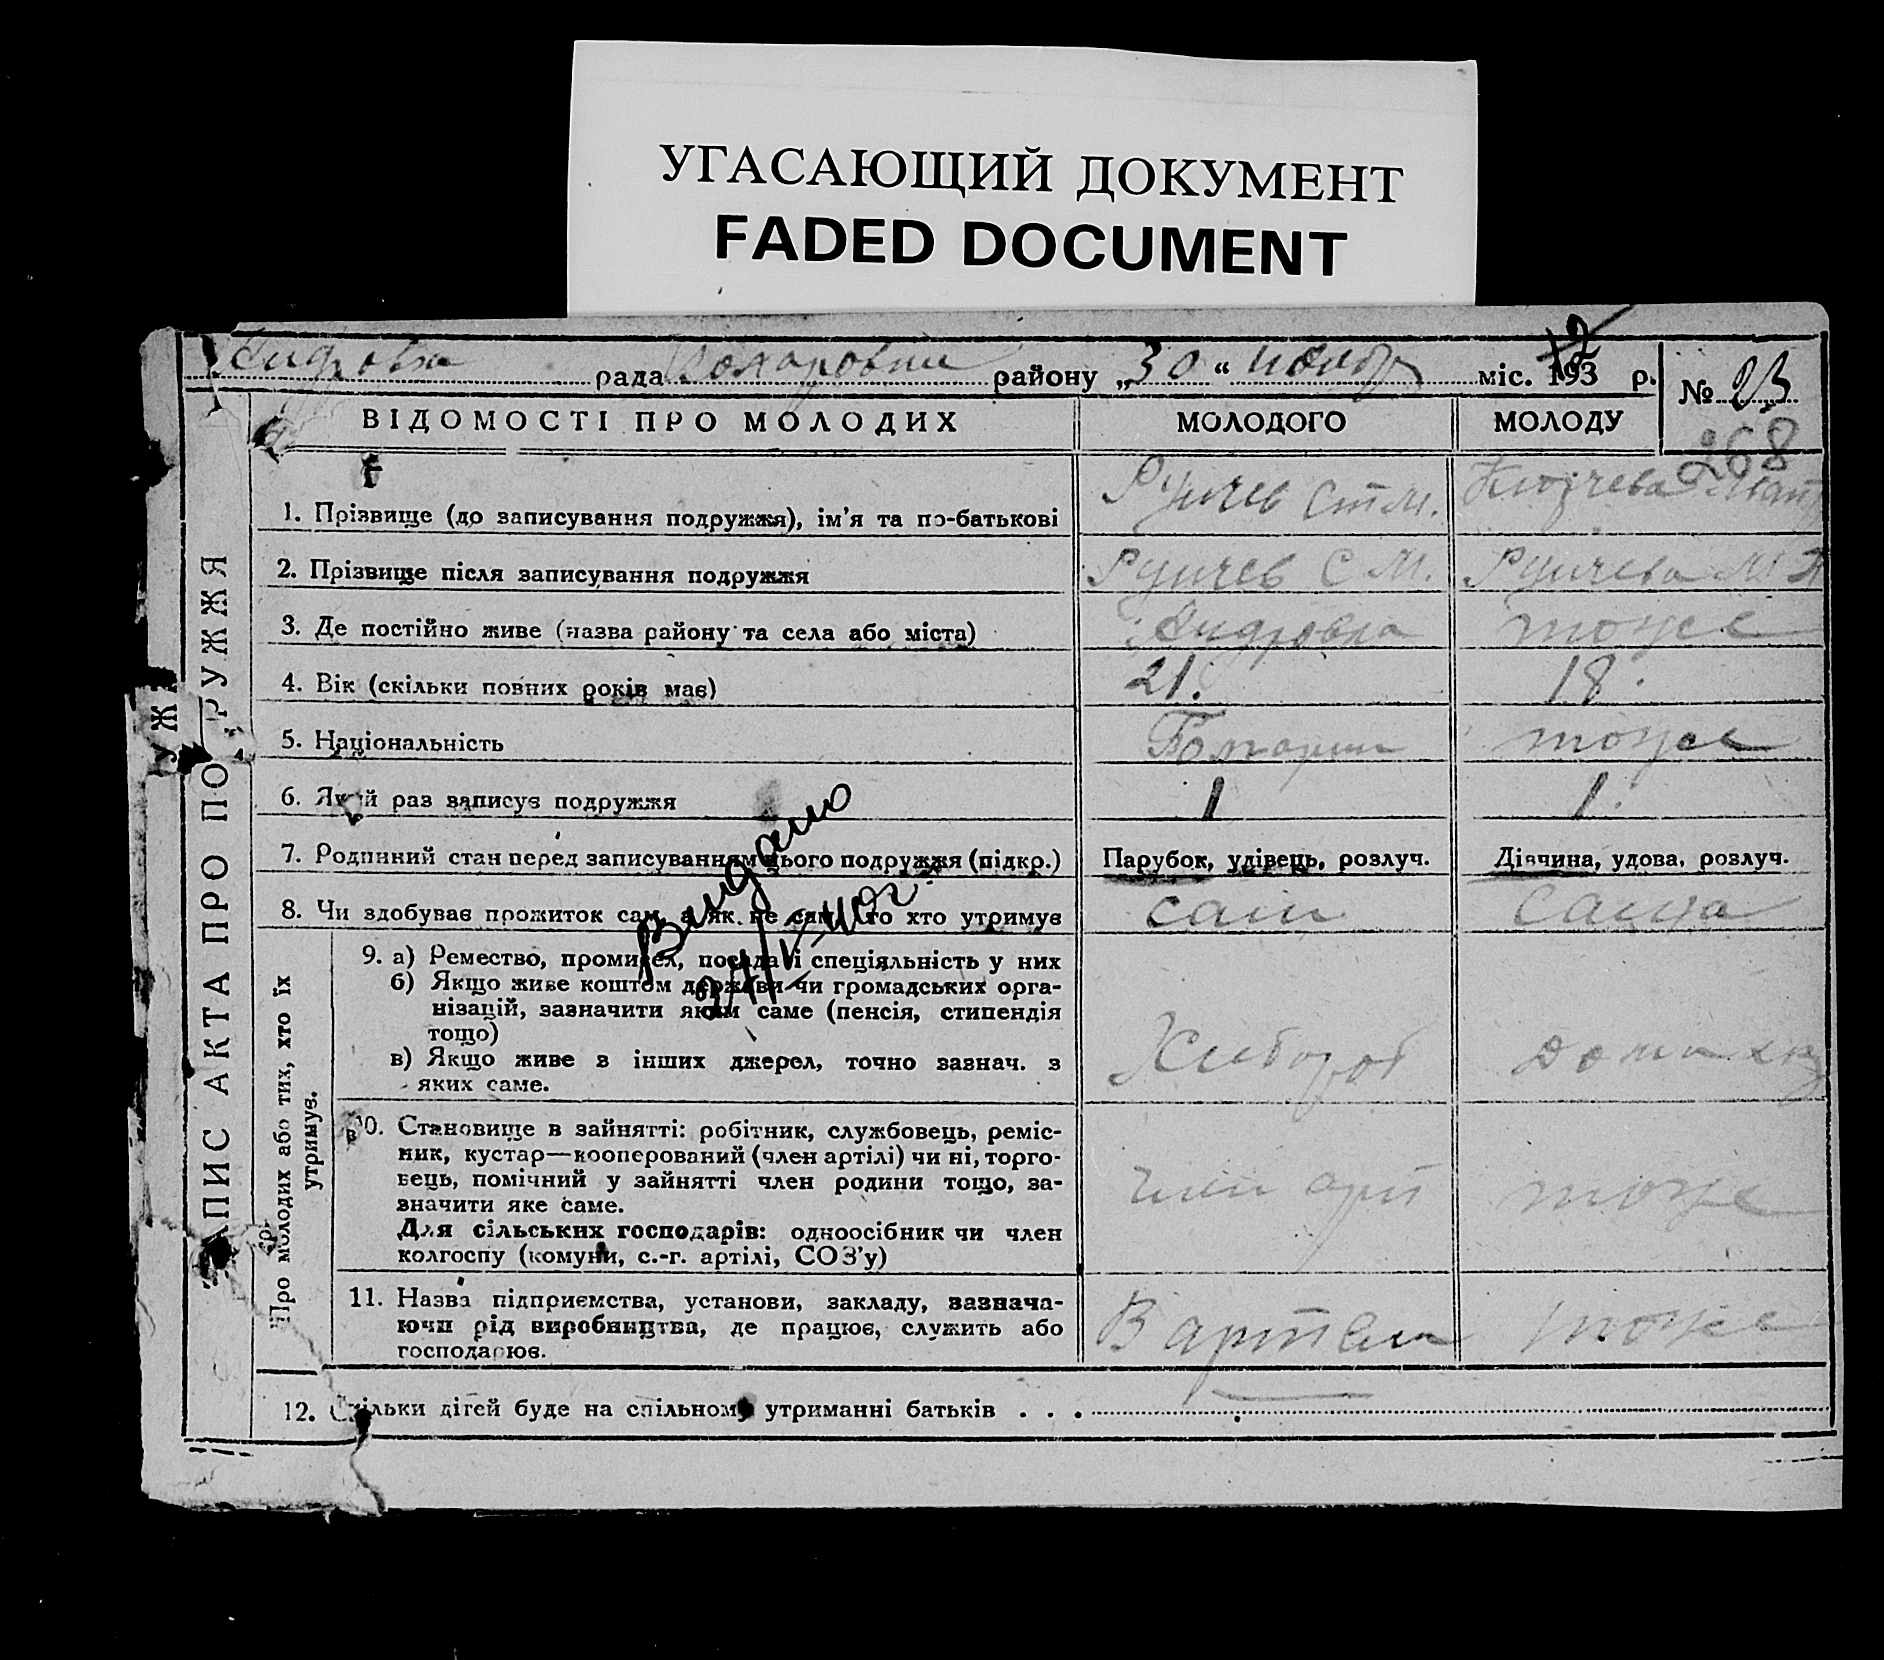 УГАСАЮЩИЙ ДОКУМЕНТ
FADED DOCUMENT
рада району „30“ міс. 193 р.
№ 23
268
ВІДОМОСТІ ПРО МОЛОДИХ МОЛОДОГО МОЛОДУ
1. Прізвище (до записування подружжя), ім'я та по-батькові Рупчев Ст. М.
2. Прізвище після записування подружжя Рупчев С М. Рупчева М
3. Де постійно живе (назва району та села або міста) тоже
4. Вік (скільки повних років має) 21. 18.
5. Національність тоже
6. Який раз записує подружжя 1 1.
7. Родинний стан перед записуванням цього подружжя (підкр.) Парубок, удівець, розлуч. Дівчина, удова, розлуч.
8. Чи здобуває прожиток сам, а як не сам, то хто утримує сам сама
Видано
ЗАПИС АКТА ПРО ПОДРУЖЖЯ
УЖ
Про молодих або тих, хто їх
утримує.
9. а) Ремество, промисел, посада і спеціяльність у них
б) Якщо живе коштом держави чи громадських орга-
нізацій, зазначити яким саме (пенсія, стипендія
тощо)
в) Якщо живе з інших джерел, точно зазнач. з
яких саме.
Хлебороб
10. Становище в зайнятті: робітник, службовець, реміс-
ник, кустар—кооперований (член артілі) чи ні, торго-
вець, помічний у зайнятті член родини тощо, за-
значити яке саме.
Для сільських господарів: одноосібник чи член
колгоспу (комуни, с.-г. артілі, СОЗ'у)
член арт тоже
11. Назва підприємства, установи, закладу, зазнача-
ючи рід виробництва, де працює, служить або
господарює.
В артели тоже
12. Скільки дітей буде на спільному утриманні батьків . . .